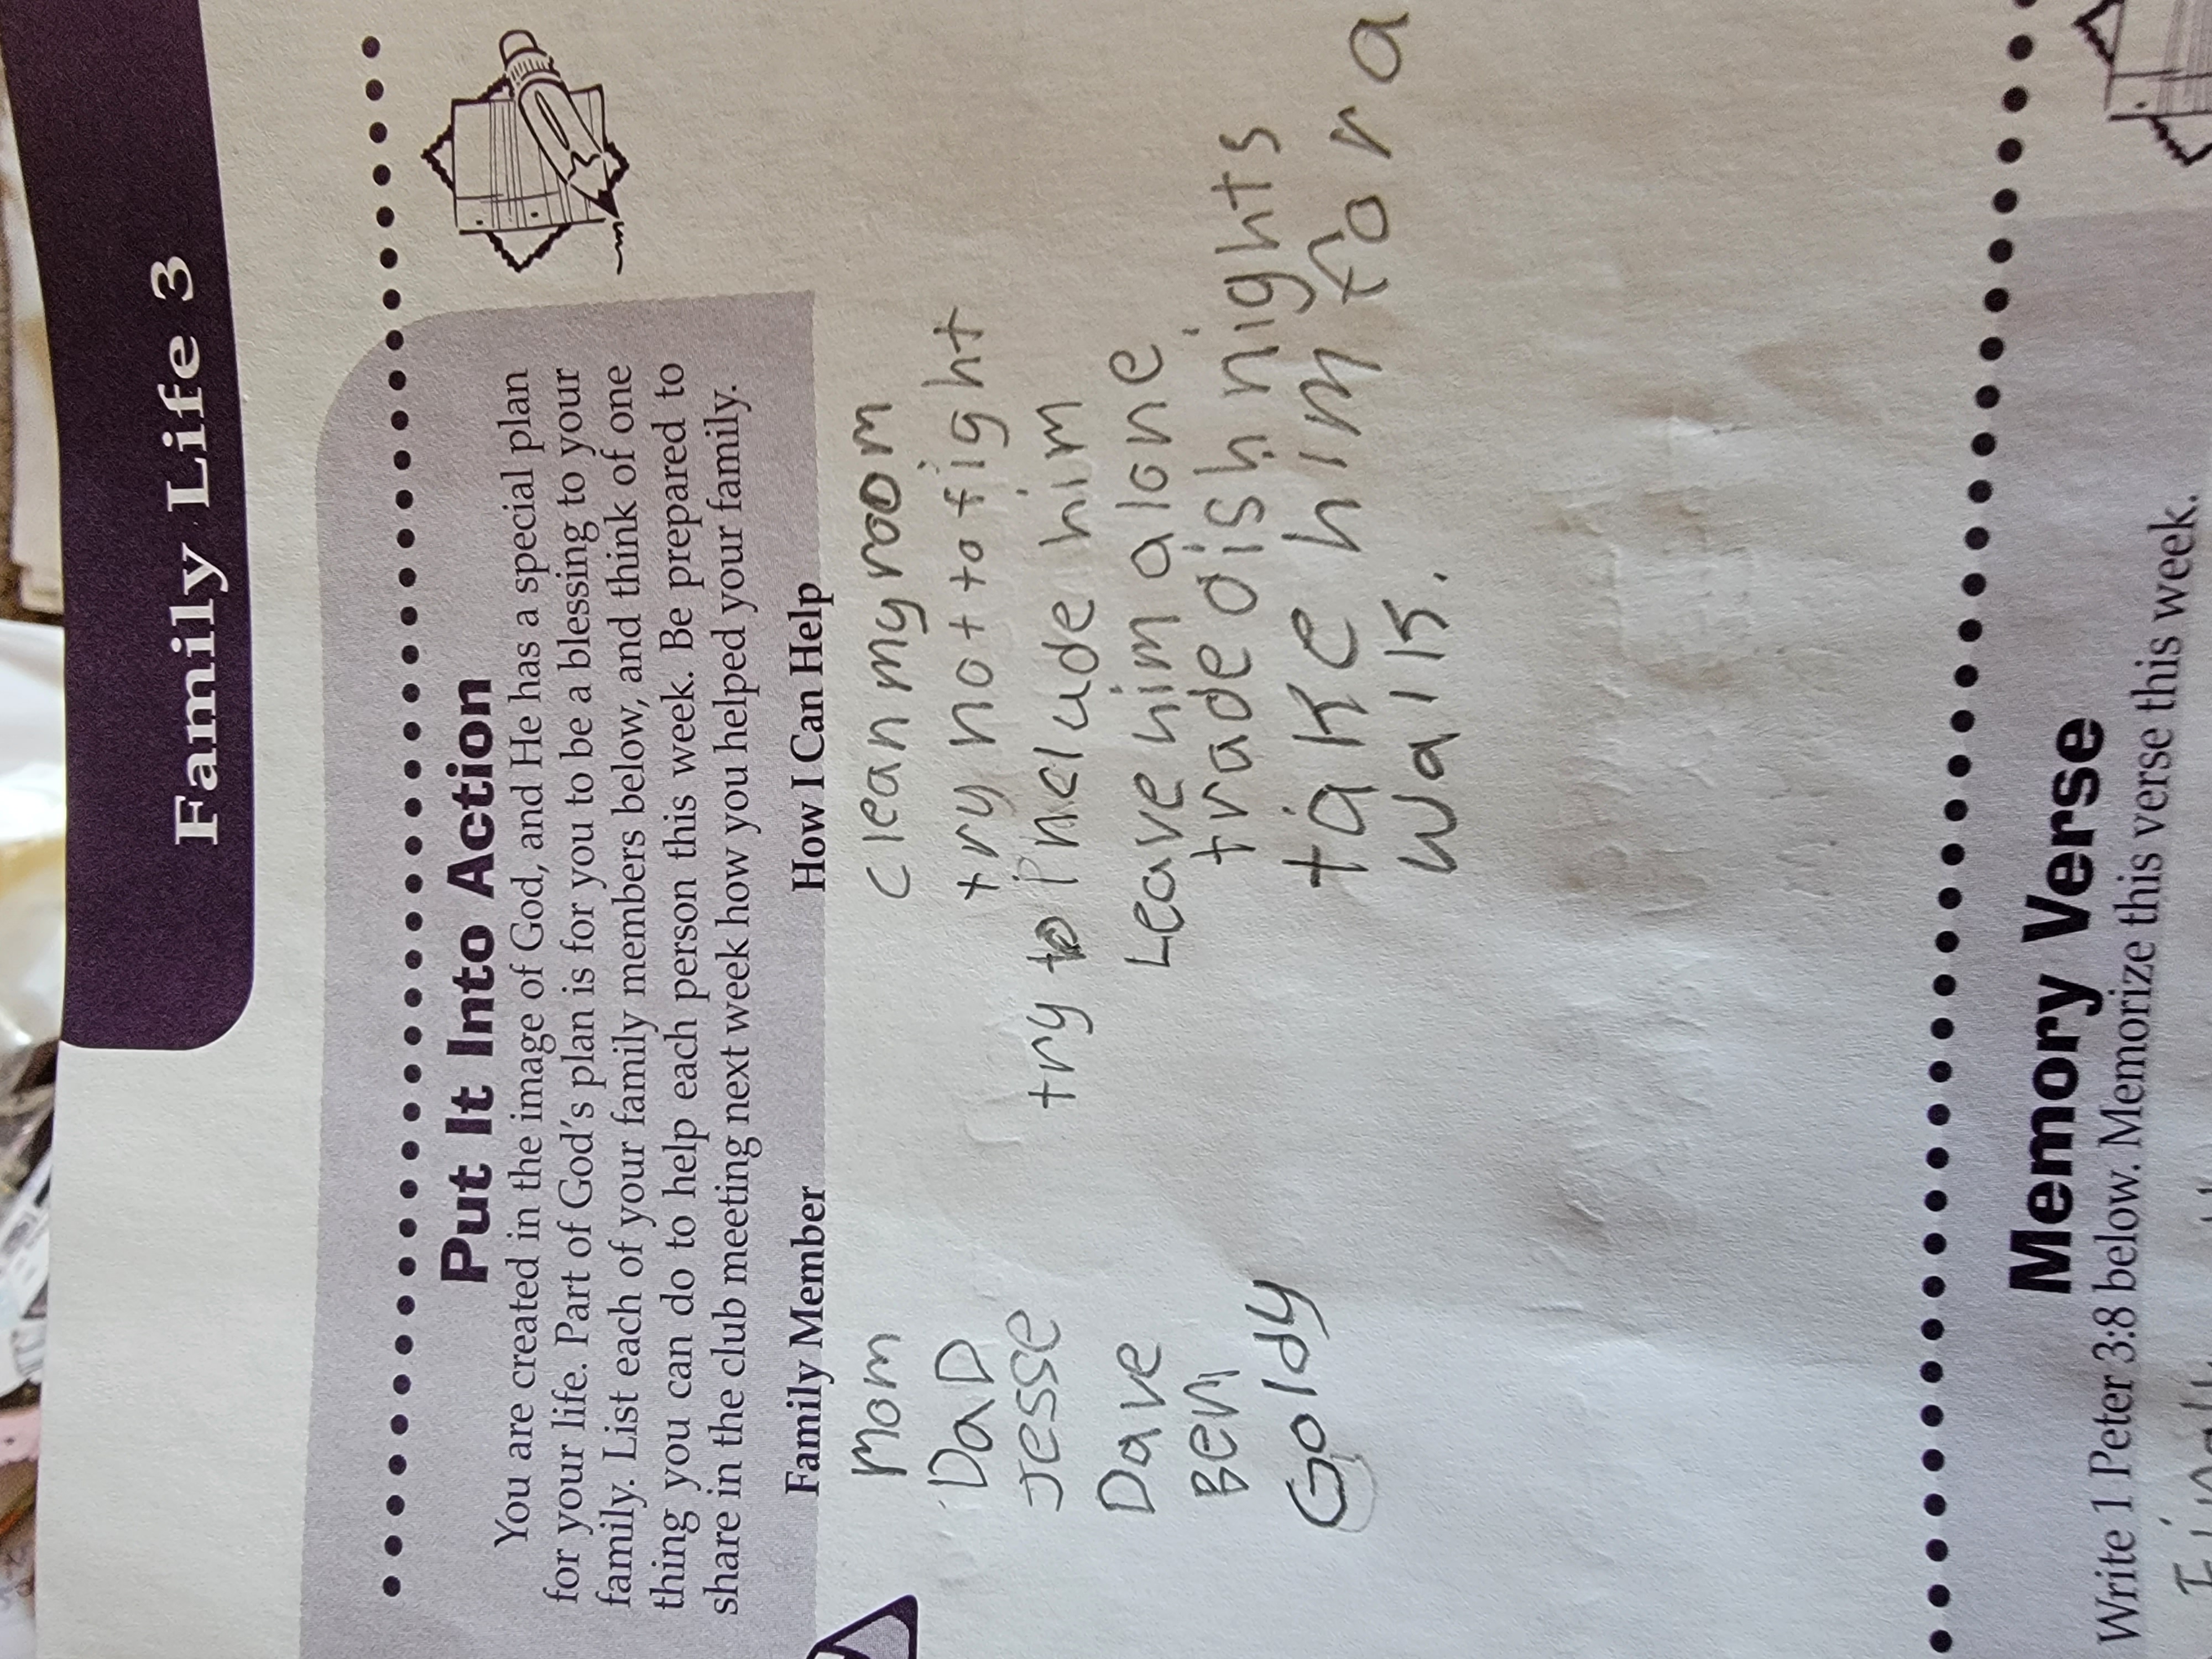 Family Life 3
Put It Into Action
You are created in the image of God, and He has a special plan
for your life. Part of God's plan is for you to be a blessing to your
family. List each of your family members below, and think of one
thing you can do to help each person this week. Be prepared to
share in the club meeting next week how you helped your family.
Family Member How I Can Help
Mom clean my room
DaD try not to fight
Jesse try to include him
Dave Leave him alone
Ben trade dish nights
Goldy take him for a
walk.
Memory Verse
Write 1 Peter 3:8 below. Memorize this verse this week.